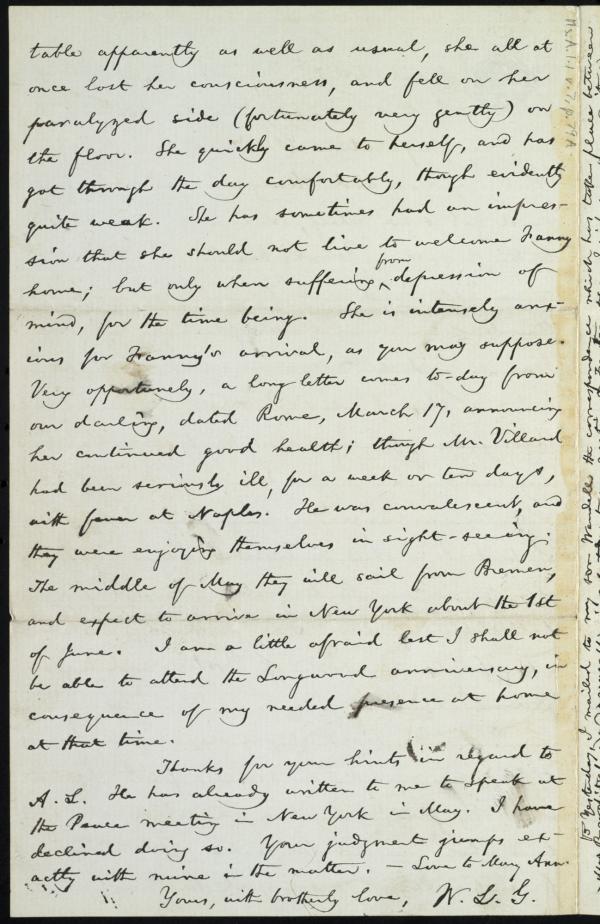 table apparently as well as usual, she all at
once lost her consciousness, and fell on her
paralyzed side (fortunately very gently) on
the floor. She quickly came to herself, and has
got through the day comfortably, though evidently
quite weak. She has sometimes had an impres-
sion that she should not live to welcome Franny
home; but only when suffering from depression of
mind, for the time being. She is intensely anx-
ious for Franny's arrival, as you may suppose.
Very opportunely, a long letter comes to-day from
our darling, dated Rome, March 17, announcing
her continued good health; though Mr. Villard
had been seriously ill, for a week or ten days,
with fever at Naples. He was convalescent, and
they were enjoying themselves in sight-seeing.
The middle of May they will sail from Bremen,
and expect to arrive in New York about the 1st
of June. I am a little afraid lest I shall not
be able to attend the Longwood anniversary, in
consequence of my needed presence at home
at that time.
Thanks for your hints in regard to
A. L. He has already written to me to speak at
the Peace meeting in New York in May. I have
declined doing so. Your judgment jumps ex-
actly with mine in the matter. — Love to May Ann.
Yours, with brotherly love, W. L. G.
Yesterday, I mailed to my son Wendell the correspondence which has taken place between